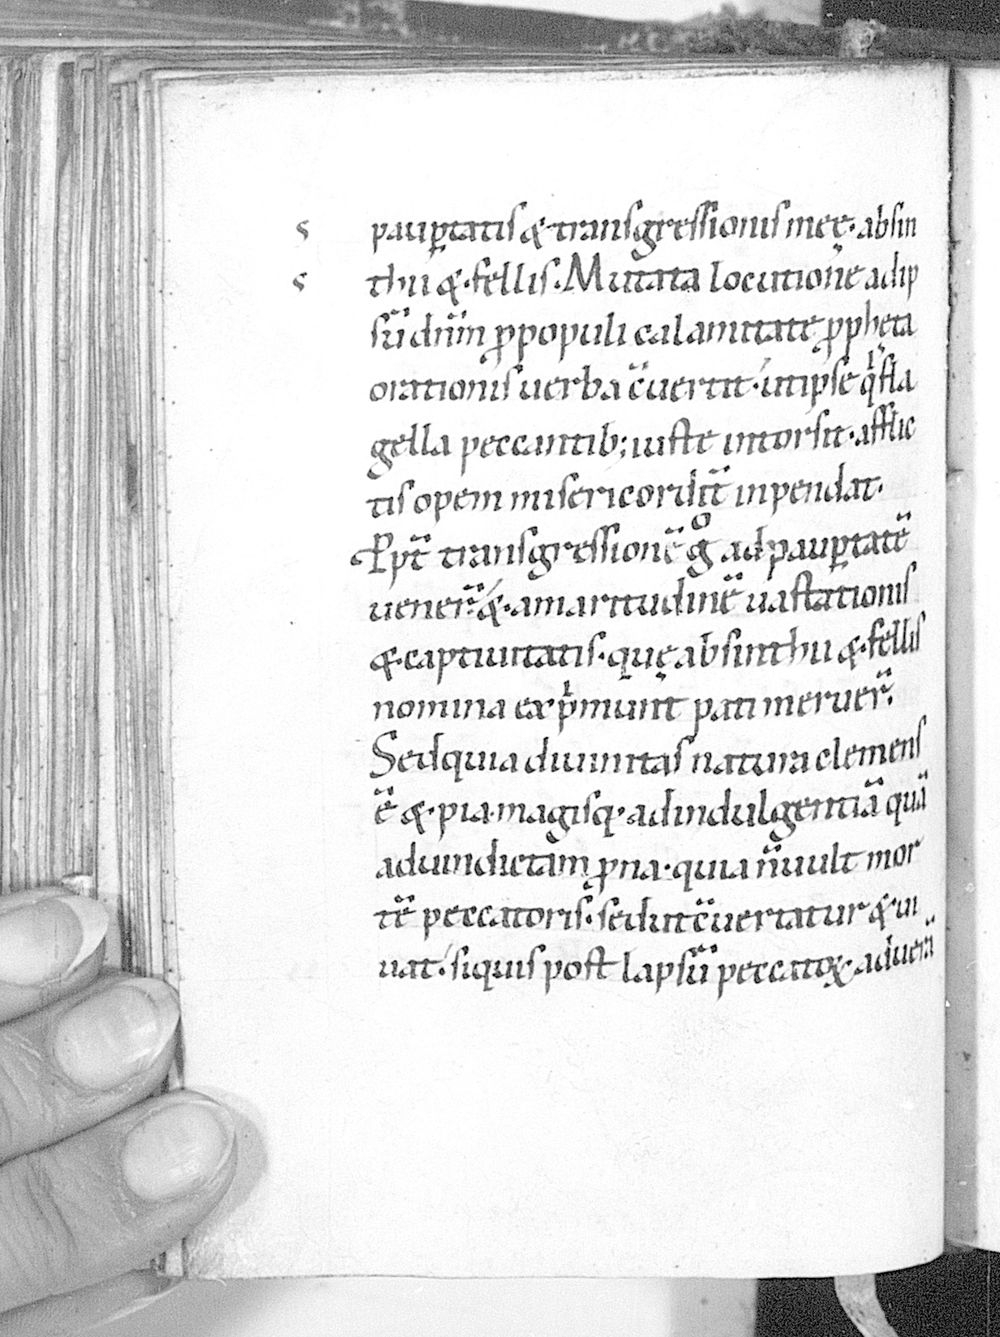 s paup̱tatis & transgressionis meę· absin
s thii &· fellis· Mutata locutione ad ip
su̅ dn̅m ꝓ populi calamitate ꝓphęta
orationis uerba c̅uertit· ut ipse q̍ fla
gella peccantib; iuste intorsit· afflic
tis opem misericordit̅ inpendat·
Ppt̅ transgressione̅ gͦ ad paup̱tate̅
uener̅ &· amaritudine̅ uastationis
&· captiuitatis· quę absinthii &· fellis
nomina exp̍munt pati meruer̅·
Sed quia diuinitas natura clemens
e̅ &· pia· magisq· ad indulgentia̅ qua̅
ad uindictam ꝓna· quia n̅ uult mor
te̅ peccatoris· sed ut c̅uertatur & ui
uat· siquis post lapsu̅ peccatoꝝ· ad uera̅